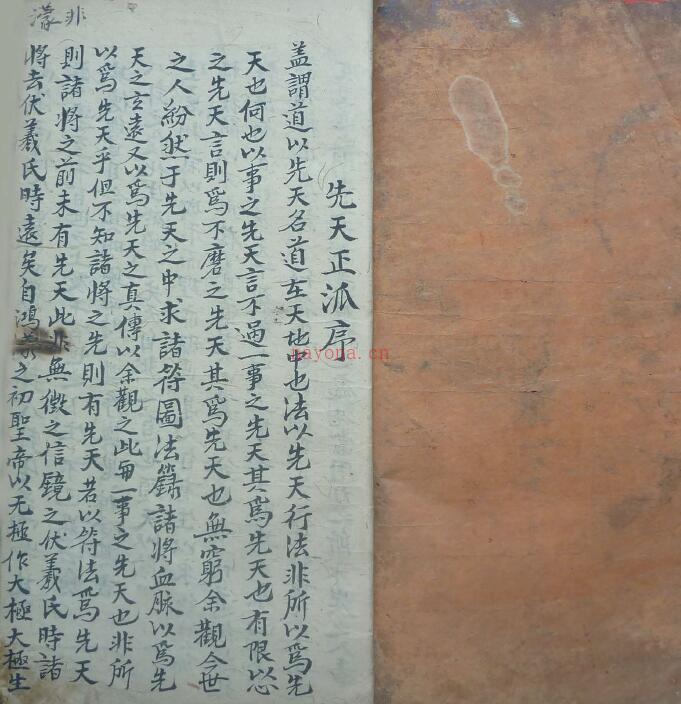 先天正派序
蓋謂道以先天名道在天地中也法以先天行法非所以爲先
天也何也以事之先天言不過一事之先天其爲先天也有限以心
之先天言則爲不磨之先天其爲先天也無窮余觀今世
之人紛然于先天之中求諸符圖法籙諸將血脉以爲先
天之玄遠又以爲先天之真傳以余觀之此毎一事之先天也非所
以爲先天乎但不知諸將之先則有先天若以符法爲先天
則諸將之前未有先天此非無徵之信鏡之伏羲氏時諸
將去伏羲氏時遠矣自鴻之初聖帝以无極作大極大極生
非
濛
nayona.cn